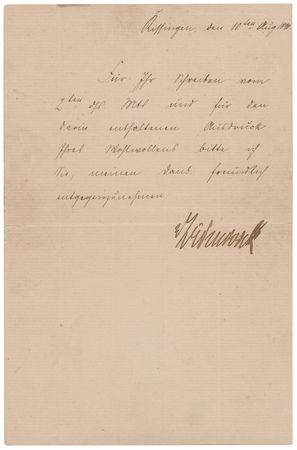 Kissingen, den 10ten Aug
Für Ihr Schreiben vom
2ten ds Mts und für den
darin enthaltenen Ausdruck
Ihres Wohlwollens bitte ich
Sie, meinen Dank freundlich
entgegenzunehmen.
vBismarck